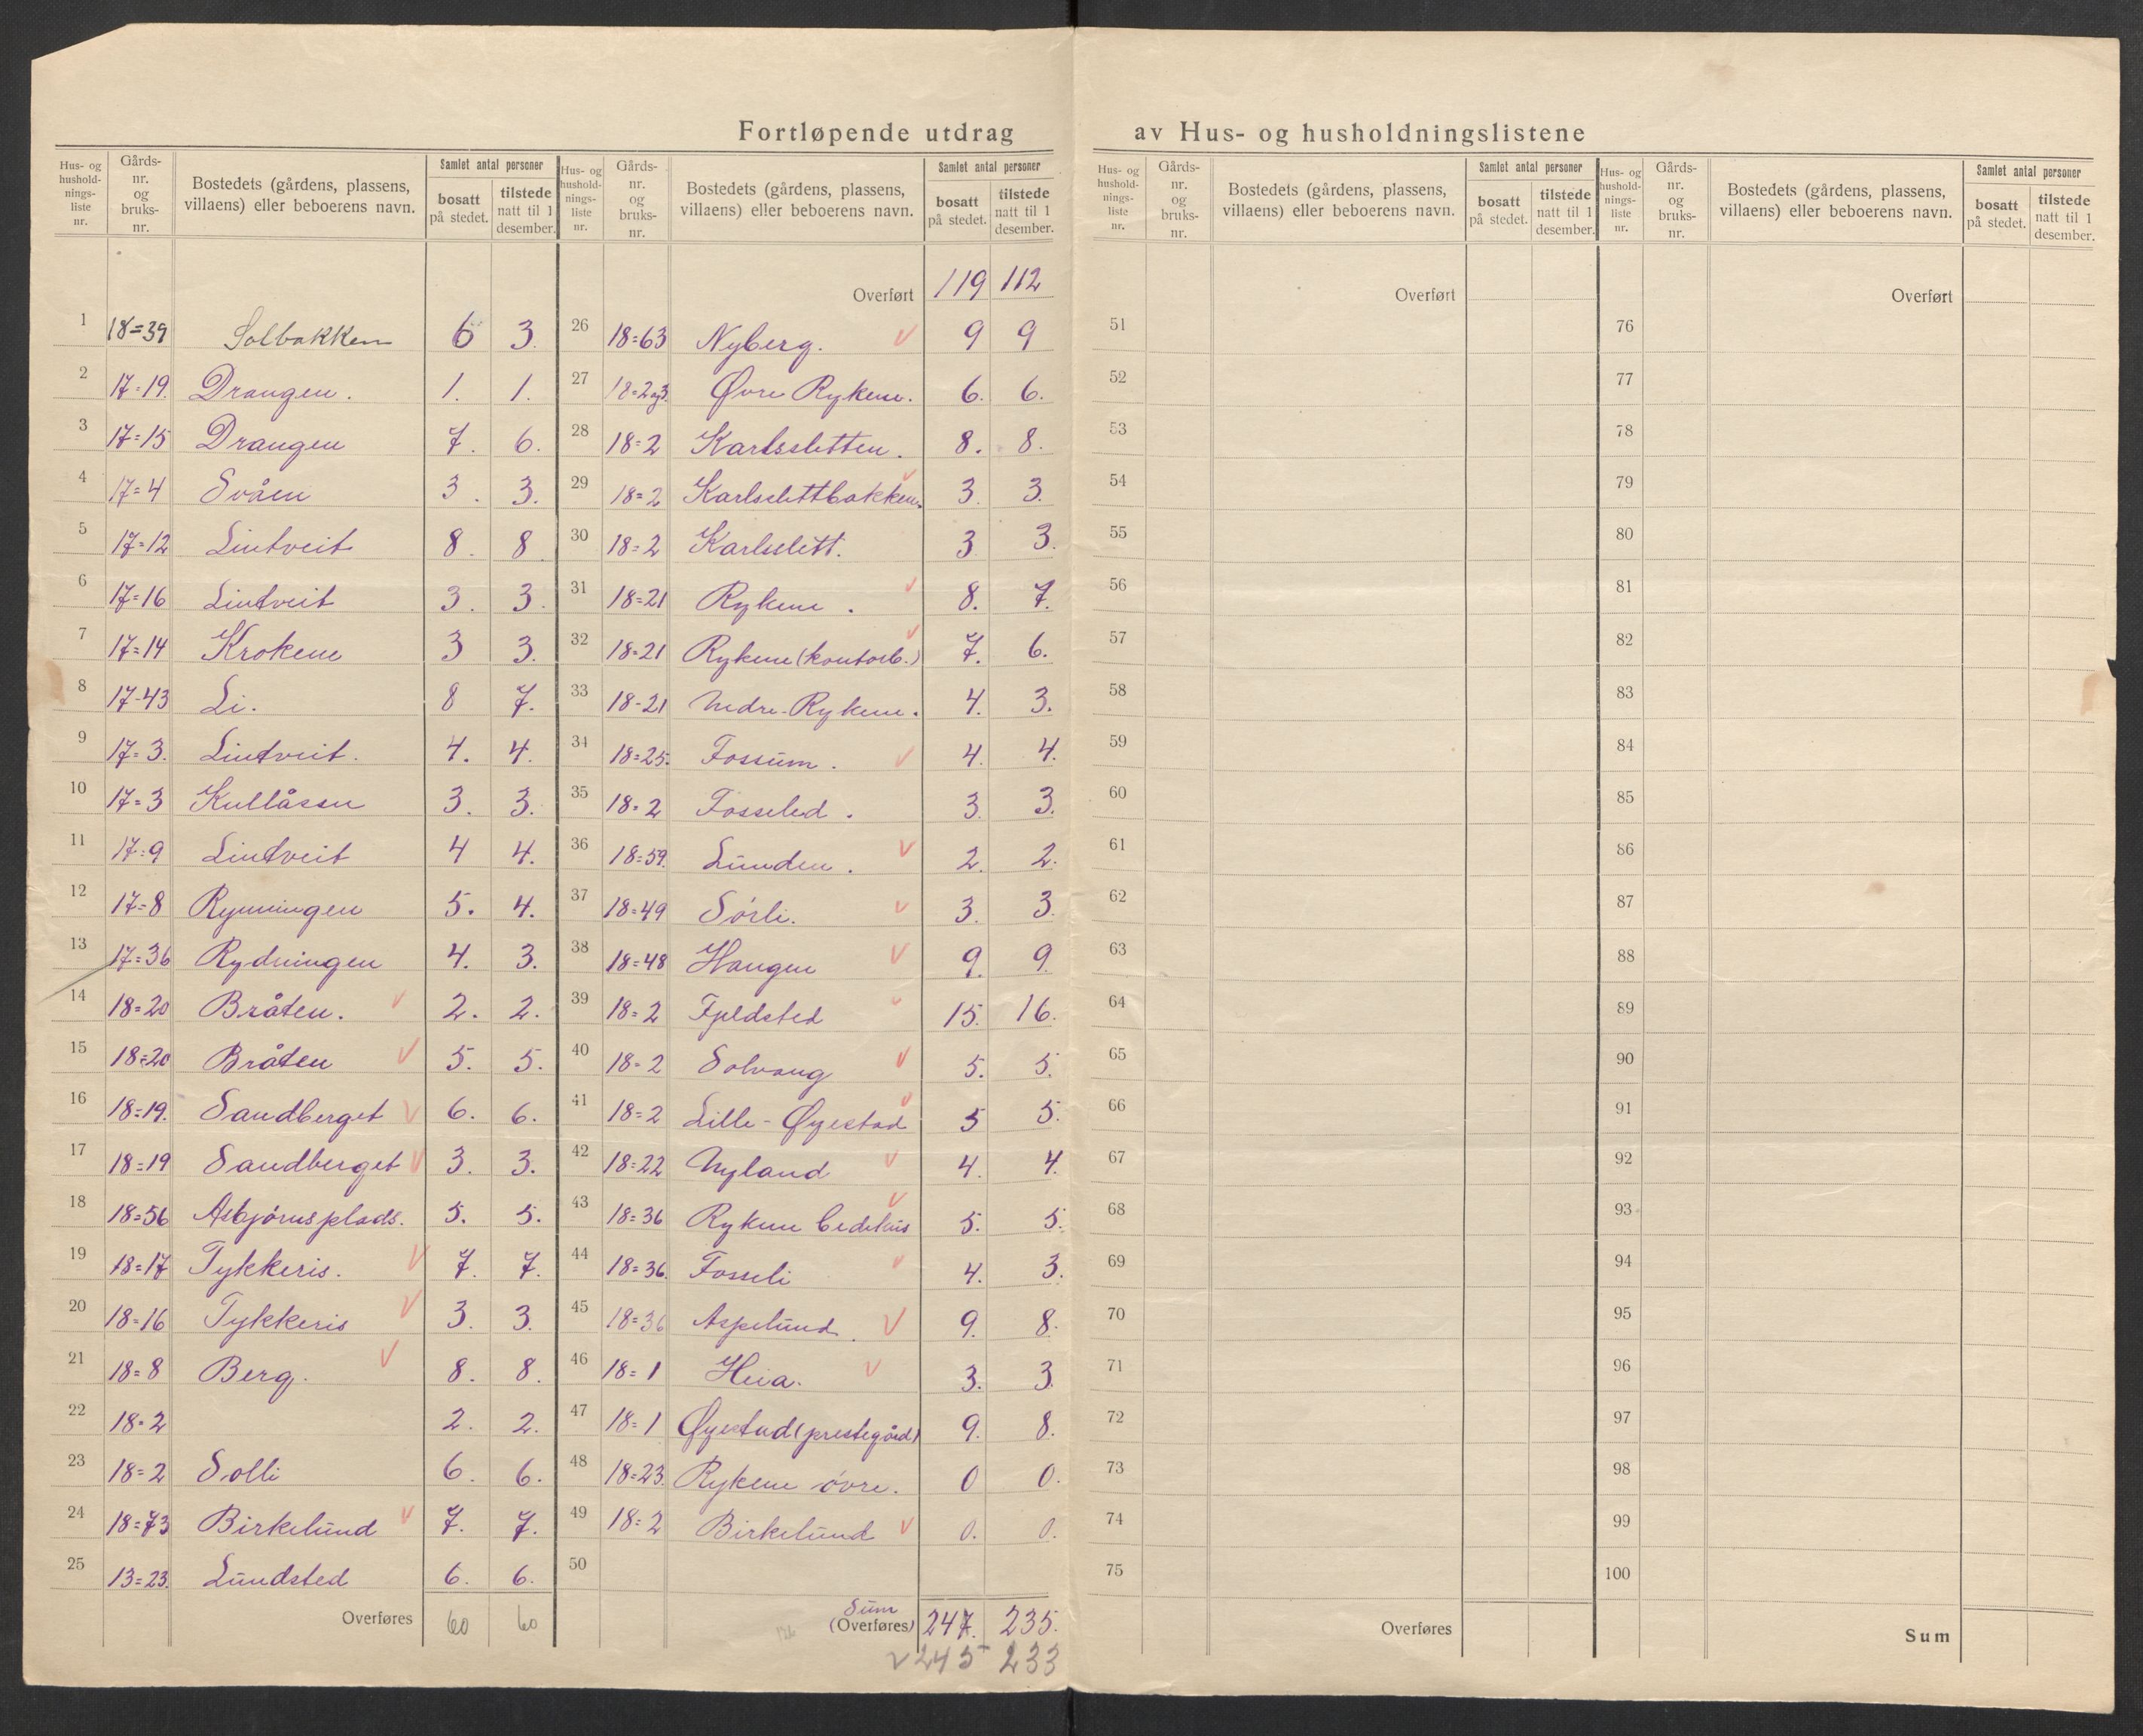 Fortløpende utdrag av Hus- og husholdningslistene
Hus- og hushold-nings-liste nr. Gårds-nr. og bruks-nr. Bostedets (gårdens, plassens, villaens) eller beboerens navn. Samlet antal personer bosatt på stedet. tilstede natt til 1 desember.
1 18=39 Solbakken 6 3
2 17=19. Drangen. 1. 1.
3 17=15 Drangen 7. 6.
4 17=4 Svåen 3. 3.
5 17=12 Lintveit 8. 8
6 17=16 Lintveit 3. 3.
7 17=14 Krokene 3 3.
8 17-43 Li. 8 7.
9 17=3. Lintveit. 4. 4.
10 17=3 Kullåsen 3. 3.
11 17=9 Lintveit 4 4.
12 17=8 Rynningen 5. 4.
13 17=36 Rydningen 4. 3.
14 18=20 Bråten. v 2. 2.
15 18=20 Bråten v 5. 5.
16 18=19. Sandberget v 6. 6.
17 18=19 Sandberget v 3. 3.
18 18=56 Asbjørnsplads. 5. 5.
19 18=17 Tykkeris. v 7. 7.
20 18=16 Tykkeris v 3. 3.
21 18=8 Berg. v 8. 8.
22 18=2 2. 2.
23 18=2 Solli 6. 6.
24 18=73 Birkelund v 7. 7.
25 13=23. Lundsted 6. 6.
Overføres 60 60
Hus- og hushold-nings-liste nr. Gårds-nr. og bruks-nr. Bostedets (gårdens, plassens, villaens) eller beboerens navn. Samlet antal personer bosatt på stedet. tilstede natt til 1 desember.
Overført 119 112
26 18=63 Nyberg. v 9 9
27 18=2og3. Øvre Rykene. 6. 6.
28 18=2 Karlssletten. 8. 8.
29 18=2 Karlslettbakken. v 3. 3.
30 18=2 Karlslett. 3 3.
31 18=21 Rykene. v 8. 7.
32 18=21 Rykene (kontorb.) v 7. 6.
33 18-21 Nedre-Rykene. 4. 3.
34 18=25. Fossum. v 4. 4.
35 18=2 Fosseled. 3. 3.
36 18=59. Lunden. v 2. 2.
37 18=49 Sørli. v 3. 3.
38 18=48 Haugen v 9. 9.
39 18=2 Fjeldsted v 15. 16.
40 18=2 Solvang v 5. 5.
41 18=2 Lille-Øyestad v 5 5.
42 18=22 Nyland v 4. 4.
43 18=36 Rykene bedehus v 5. 5.
44 18=36. Fosseli v 4. 3.
45 18=36 Aspelund. v 9. 8.
46 18=1 Heia. v 3. 3.
47 18=1 Øyestad (prestegård) 9. 8.
48 18=23. Rykene øvre. 0 0.
49 18=2 Birkelund v 0. 0.
50
Sum
(Overføres) 247. 235.
126
v 245 233
Hus- og hushold-nings-liste nr. Gårds-nr. og bruks-nr. Bostedets (gårdens, plassens, villaens) eller beboerens navn. Samlet antal personer bosatt på stedet. tilstede natt til 1 desember.
Overført
51
52
53
54
55
56
57
58
59
60
61
62
63
64
65
66
67
68
69
70
71
72
73
74
75
Overføres
Hus- og hushold-nings-liste nr. Gårds-nr. og bruks-nr. Bostedets (gårdens, plassens, villaens) eller beboerens navn. Samlet antal personer bosatt på stedet. tilstede natt til 1 desember.
Overført
76
77
78
79
80
81
82
83
84
85
86
87
88
89
90
91
92
93
94
95
96
97
98
99
100
Sum